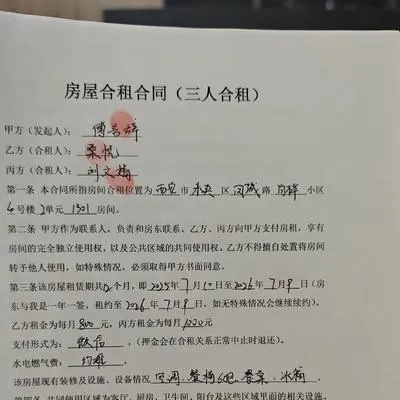 房屋合租合同（三人合租）
甲方（发起人）：傅喜
乙方（合租人）：栾悦
丙方（合租人）：刘文梅
第一条 本合同所指房间合租位置为西安市未央区凤城路百祥小区
4号楼2单元1301房间。
第二条 甲方作为联系人，负责和房东联系。乙方、丙方向甲方支付房租，享有
房间的完全独立使用权，以及公共区域的共同使用权。乙方不得擅自处置将房间
转予他人使用，如特殊情况，必须取得甲方书面同意。
第三条该房屋租赁期共12个月，即2025年7月10日至2026年7月9日（房
东与我是一年一签，租约至2026年7月9日，如无特殊情况会继续续约）。
乙方租金为每月800元，丙方租金为每月1000元。
支付形式为：微信，（押金会在合租关系正常中止时退还）。
水电燃气费：均摊
该房屋现有装修及设施、设备情况空调、餐椅6把、餐桌、冰箱
第四条 共同使用区域为客厅、厨房、卫生间、阳台及这些区域里面的相关设施